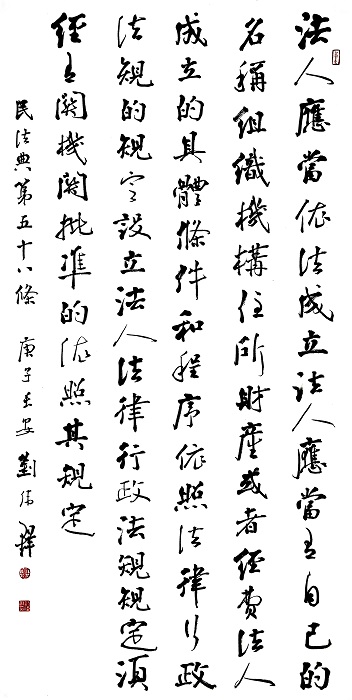 法人應當依法成立法人應當有自己的
名稱組織機構住所財產或者經費法人
成立的具體條件和程序依照法律行政
法規的規定設立法人法律行政法規規定須
經有關機關批準的依照其規定
民法典第五十八條 庚子 劉